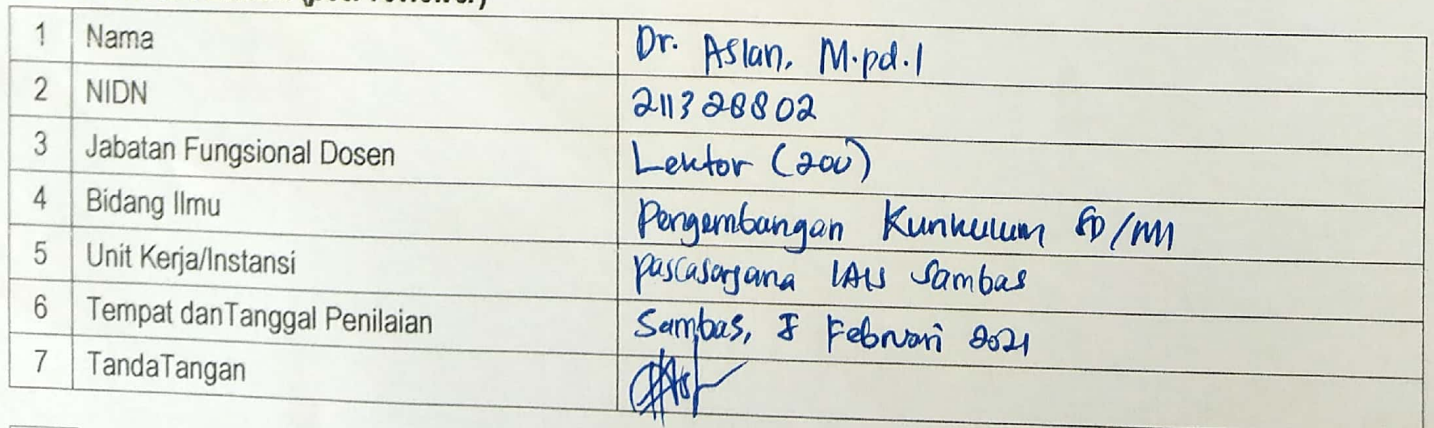 1 Nama Dr. Aslan, M.pd.I
2 NIDN 211328802
3 Jabatan Fungsional Dosen Lektor (200)
4 Bidang Ilmu Pengembangan Kurikulum SD/MI
5 Unit Kerja/Instansi pascasarjana IAIS Sambas
6 Tempat danTanggal Penilaian Sambas, 8 Februari 2021
7 TandaTangan